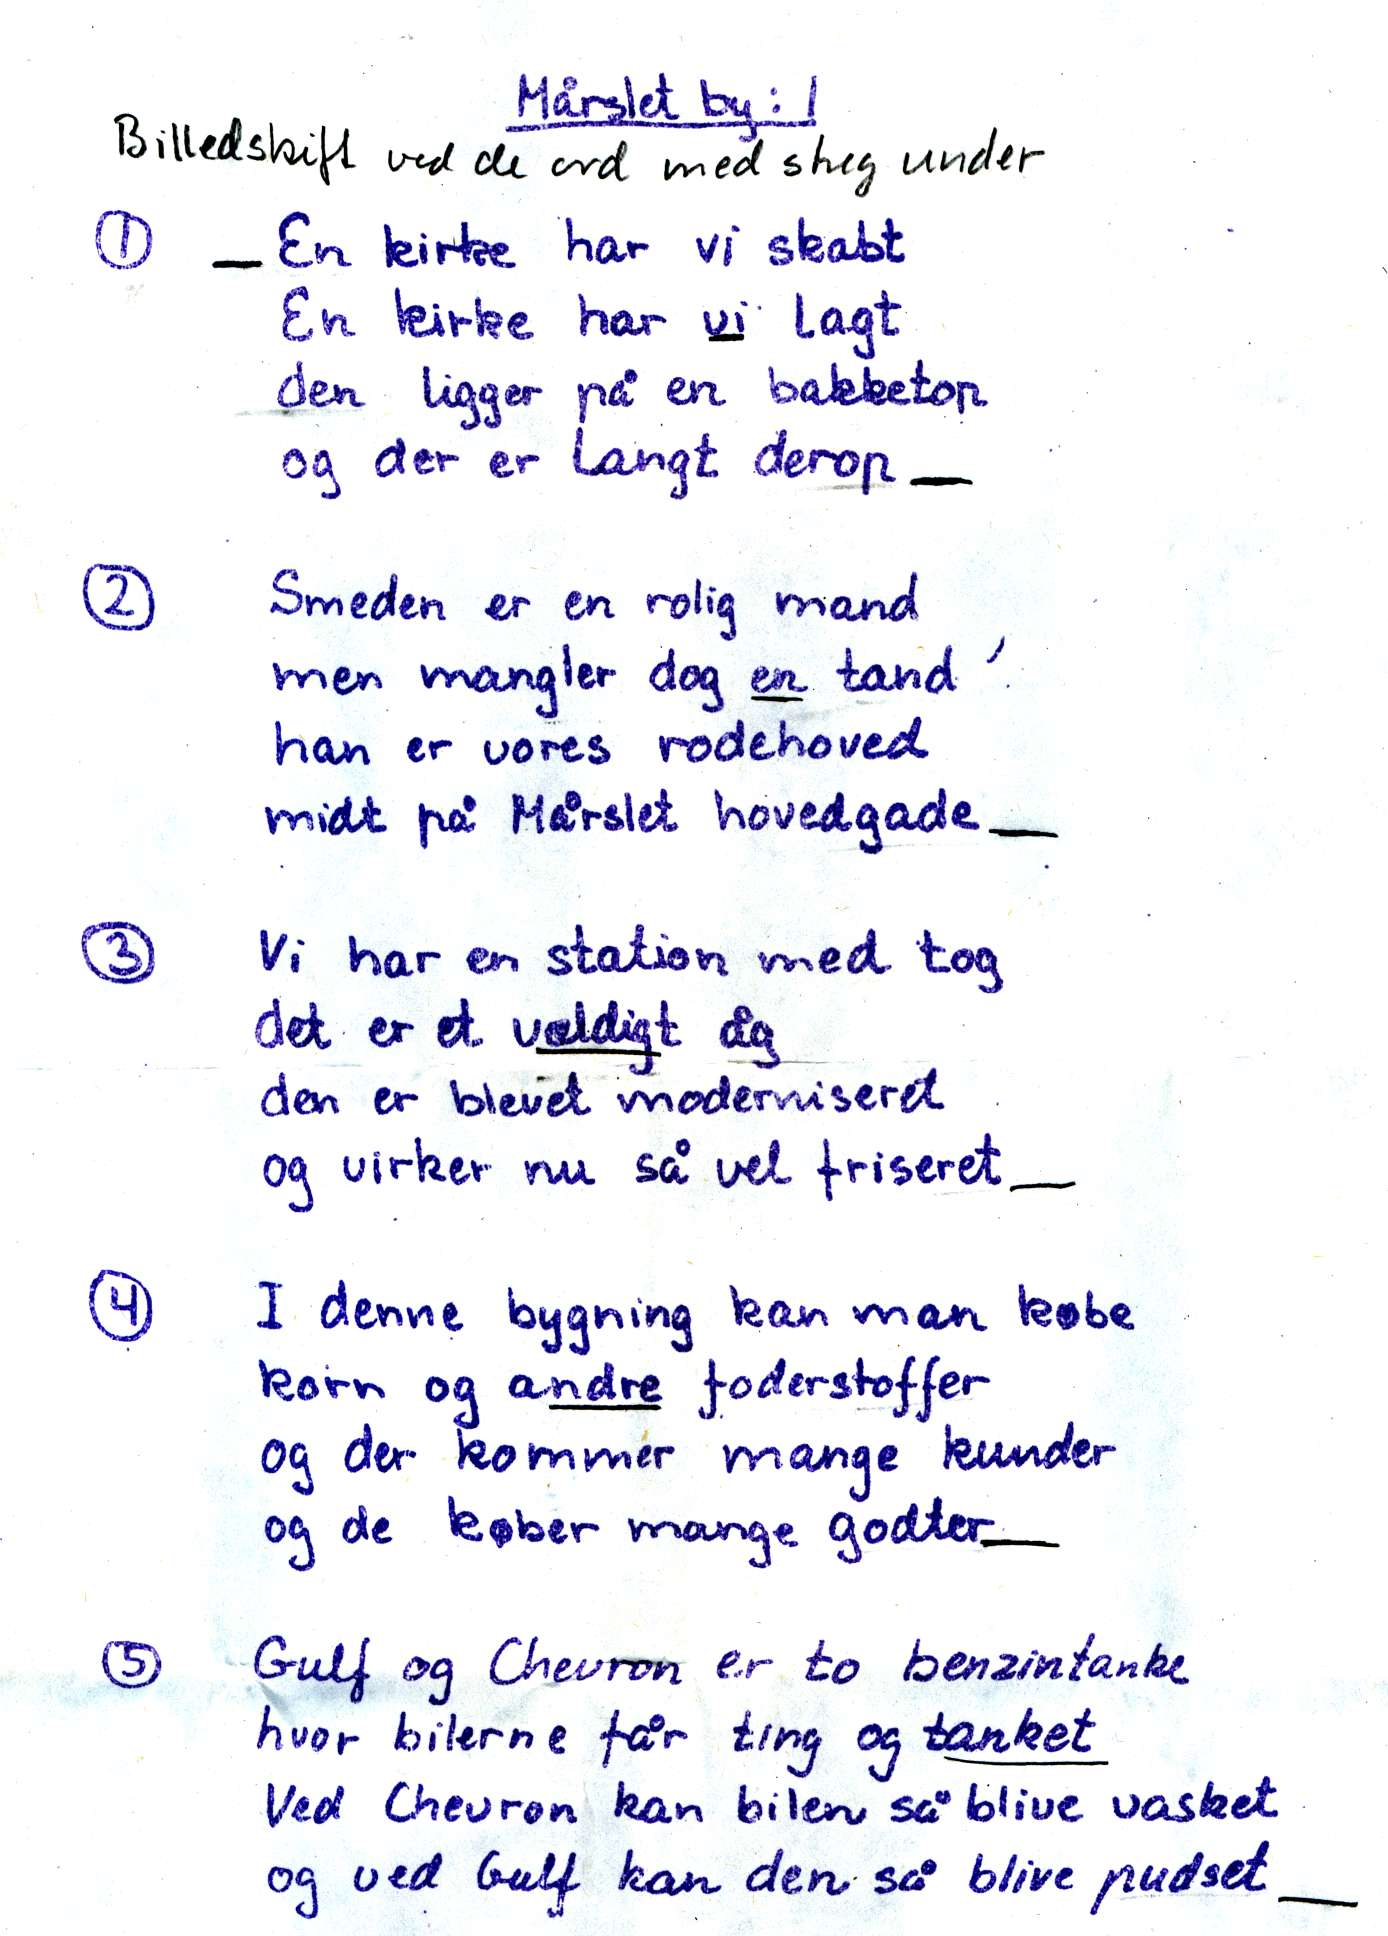 Mårslet by: 1
Billedskift ved de ord med streg under
① _ En kirke har vi skabt
En kirke har vi lagt
den ligger på en bakketop
og der er langt derop _
② Smeden er en rolig mand
men mangler dog en tand
han er vores rodehoved
midt på Mårslet hovedgade _
③ Vi har en station med tog
det er et vældigt åg
den er blevet moderniseret
og virker nu så vel friseret _
④ I denne bygning kan man købe
korn og andre foderstoffer
og der kommer mange kunder
og de køber mange godter _
⑤ Gulf og Chevron er to benzintanke
hvor bilerne får ting og tanket
Ved Chevron kan bilen så blive vasket
og ved Gulf kan den så blive pudset _